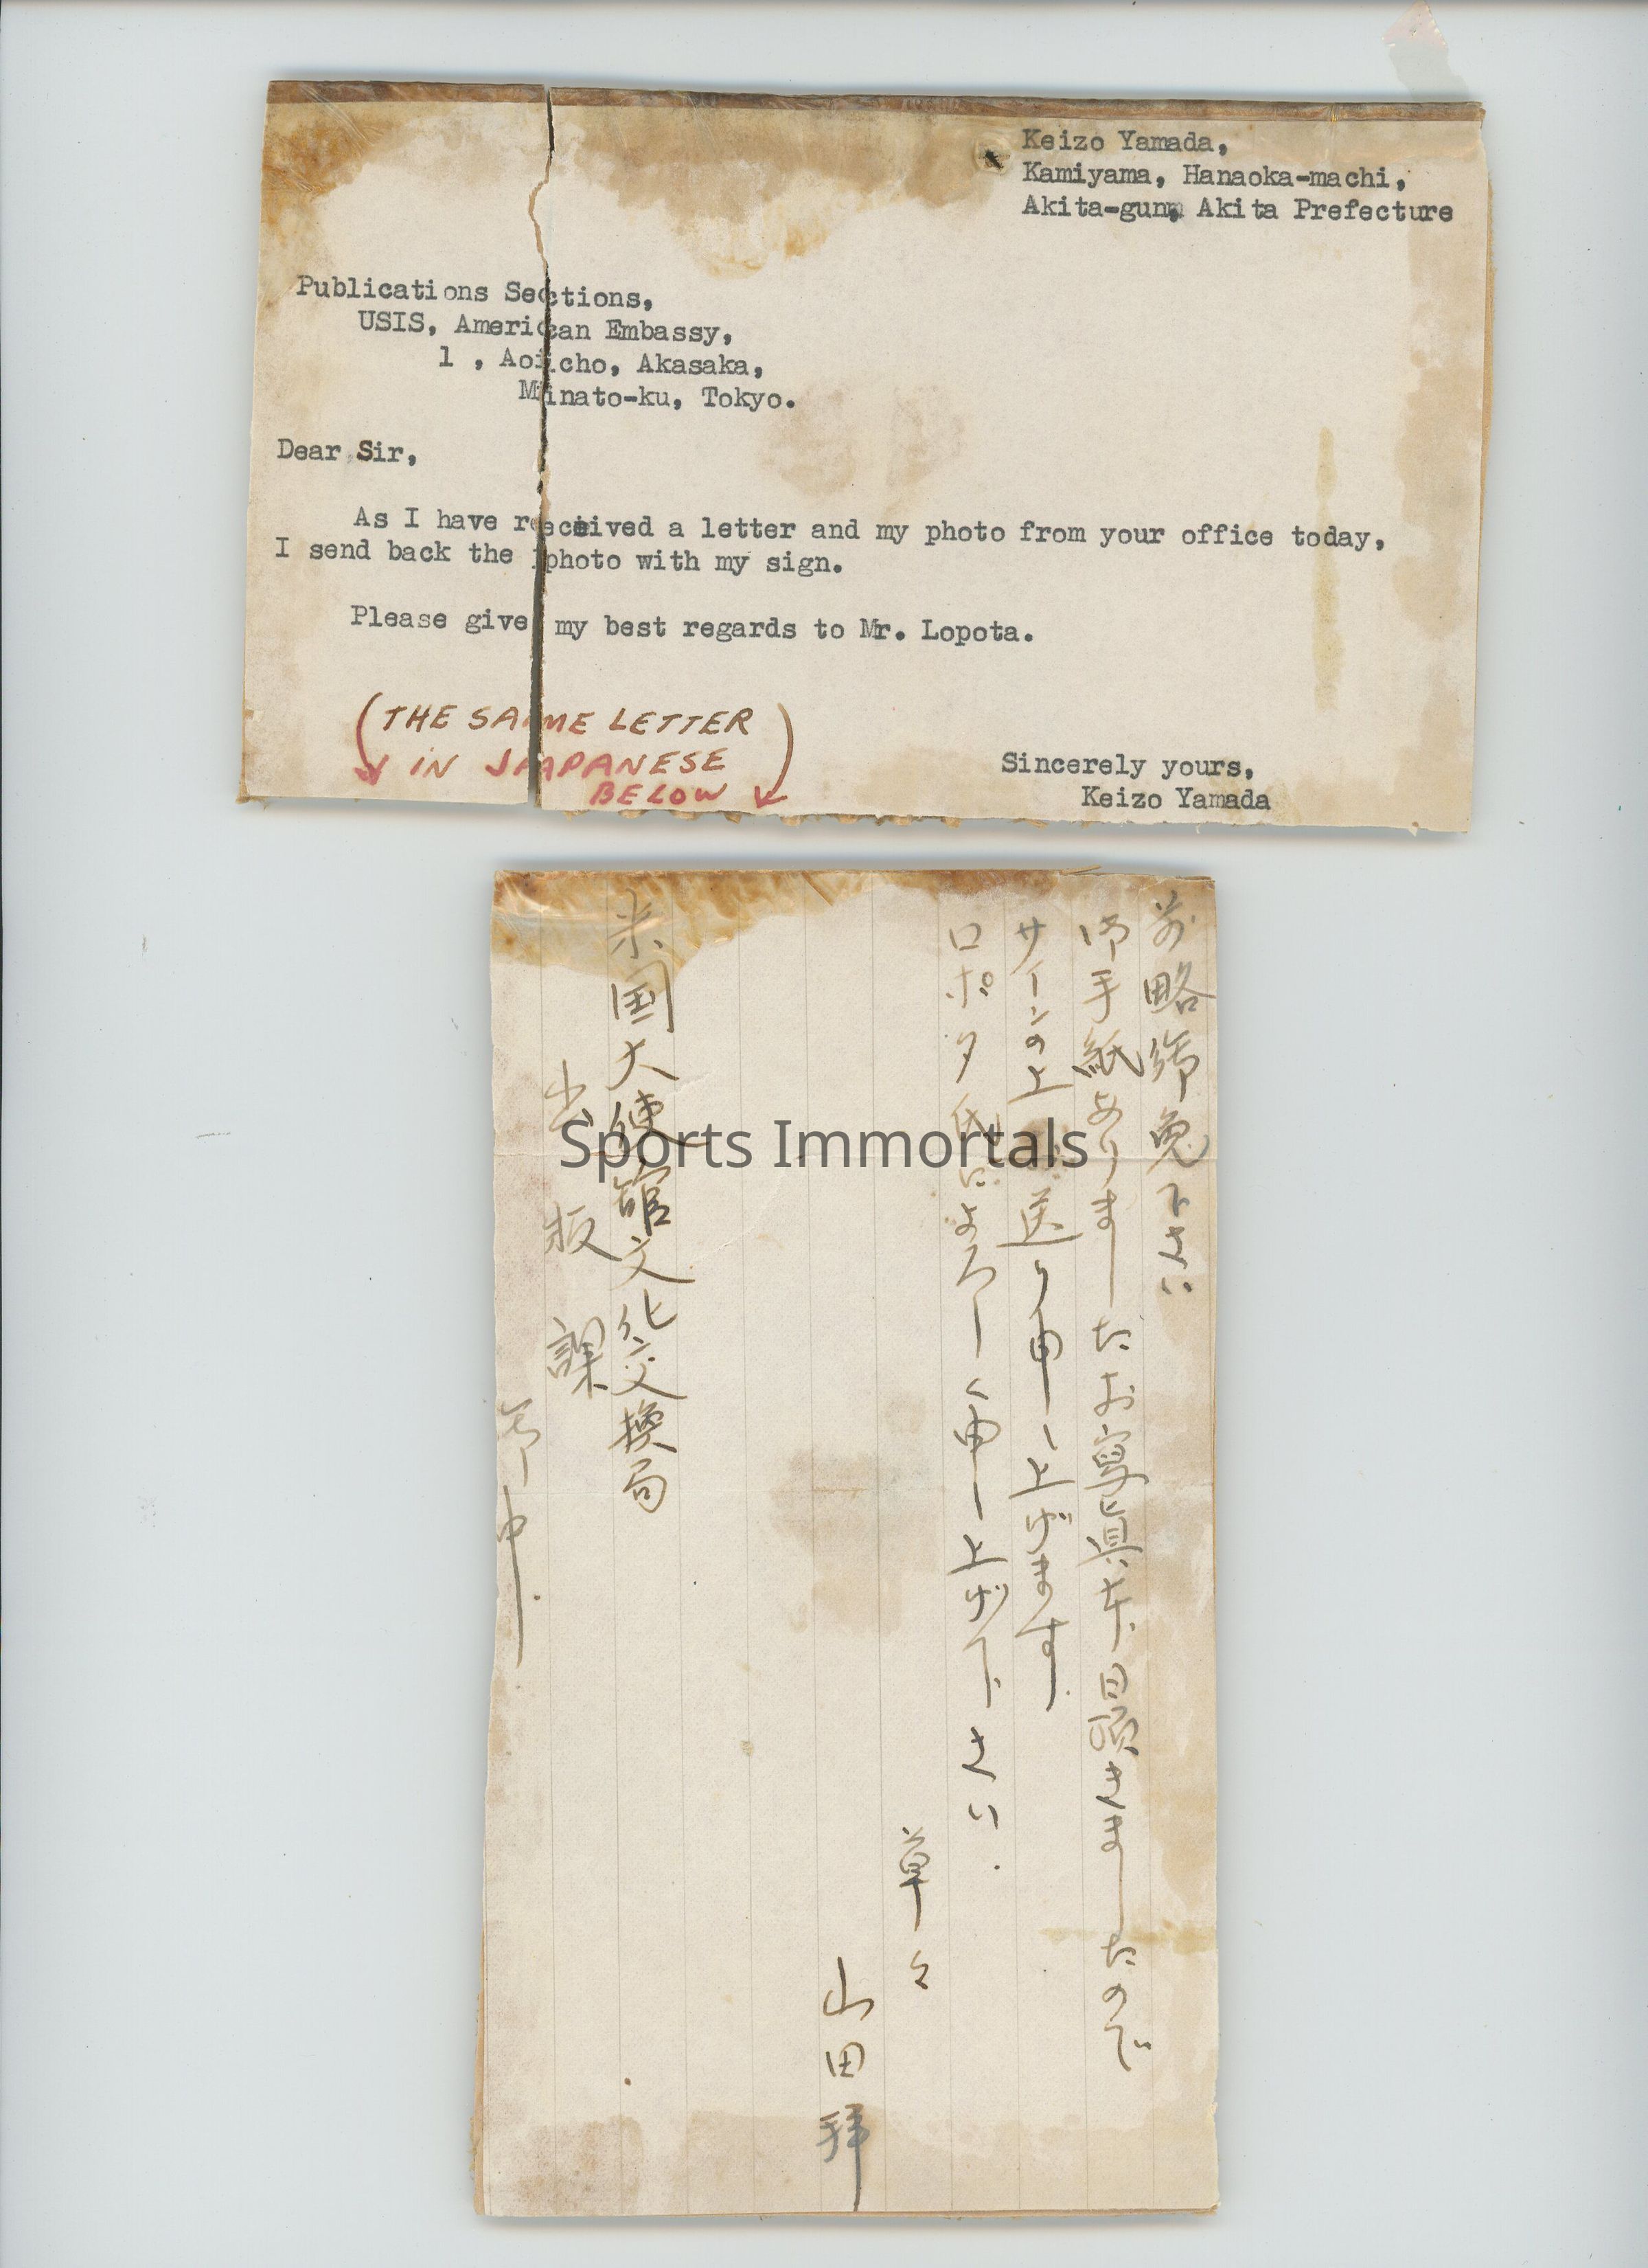 Keizo Yamada,
Kamiyama, Hanaoka-machi,
Akita-gun, Akita Prefecture
Publications Sections,
USIS, American Embassy,
1 , Aoicho, Akasaka,
Minato-ku, Tokyo.
Dear Sir,
As I have received a letter and my photo from your office today,
I send back the photo with my sign.
Please give my best regards to Mr. Lopota.
(THE SAME LETTER
IN JAPANESE
BELOW)
Sincerely yours,
Keizo Yamada
前略御免下さい
御手紙ありましたお写真本日頂きましたので
サインの上 送り申し上げます
ロポタ氏によろしく申し上げて下さい.
草々
山田拝
米国大使館文化交換局
出版課
御中
Sports Immortals